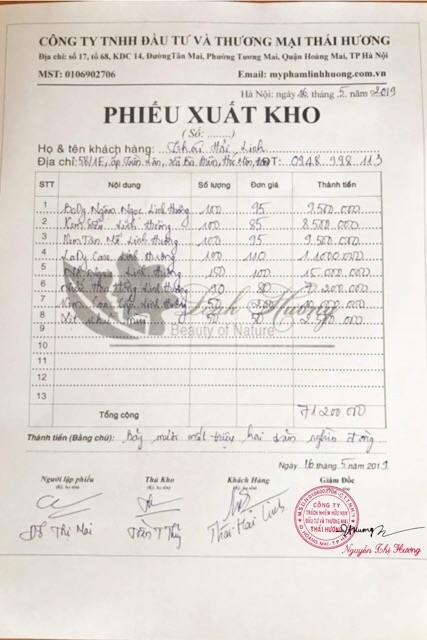 CÔNG TY TNHH ĐẦU TƯ VÀ THƯƠNG MẠI THÁI HƯƠNG
Địa chỉ: số 17, tổ 68, KDC 14, ĐườngTân Mai, Phường Tương Mai, Quận Hoàng Mai, TP Hà Nội
MST: 0106902706 Email: myphamlinhhuong.com.vn
Hà Nội: ngày 16 tháng 5 năm 2019
PHIẾU XUẤT KHO
( Số: ........)
Họ & tên khách hàng: Thái Hải Linh
Địa chỉ: 58/1E, ấp Xã Bà Điểm, Hóc Môn, ĐT: 0948.998.113
STT Nội dung Số lượng Đơn giá Thành tiền
1 BoDy Ngâm Ngọc Linh Hương 100 95 9.500.000
2 Kem Linh Hương 100 85 8.500.000
3 Kem Tan Mỡ Linh Hương 100 95 9.500.000
4 LaDy Care Linh Hương 100 110 11.000.000
5 Linh Hương 150 100 15.000.000
6 Linh Hương 90 80 7.200.000
7 Kem Linh Hương 50
8 50 50
9
10
11
12
13
Linh Hương
Beauty of Nature
Tổng cộng 71.200.000
Thành tiền (Bằng chữ): Bảy mươi mốt triệu hai trăm nghìn đồng
Ngày 16 tháng 5 năm 2019
Người lập phiếu Thủ Kho Khách Hàng Giám Đốc
(Ký, họ tên) (Ký, họ tên) (Ký, họ tên) (Ký, họ tên)
Đỗ Thị Mai Trần T Thủy Thái Hải Linh
M.S.D.N:0106902706-C.T.T.N.H.H
CÔNG TY
TRÁCH NHIỆM HỮU HẠN
ĐẦU TƯ VÀ THƯƠNG MẠI
THÁI HƯƠNG
Q. HOÀNG MAI - T.P HÀ NỘI
Nguyễn Thị Hương